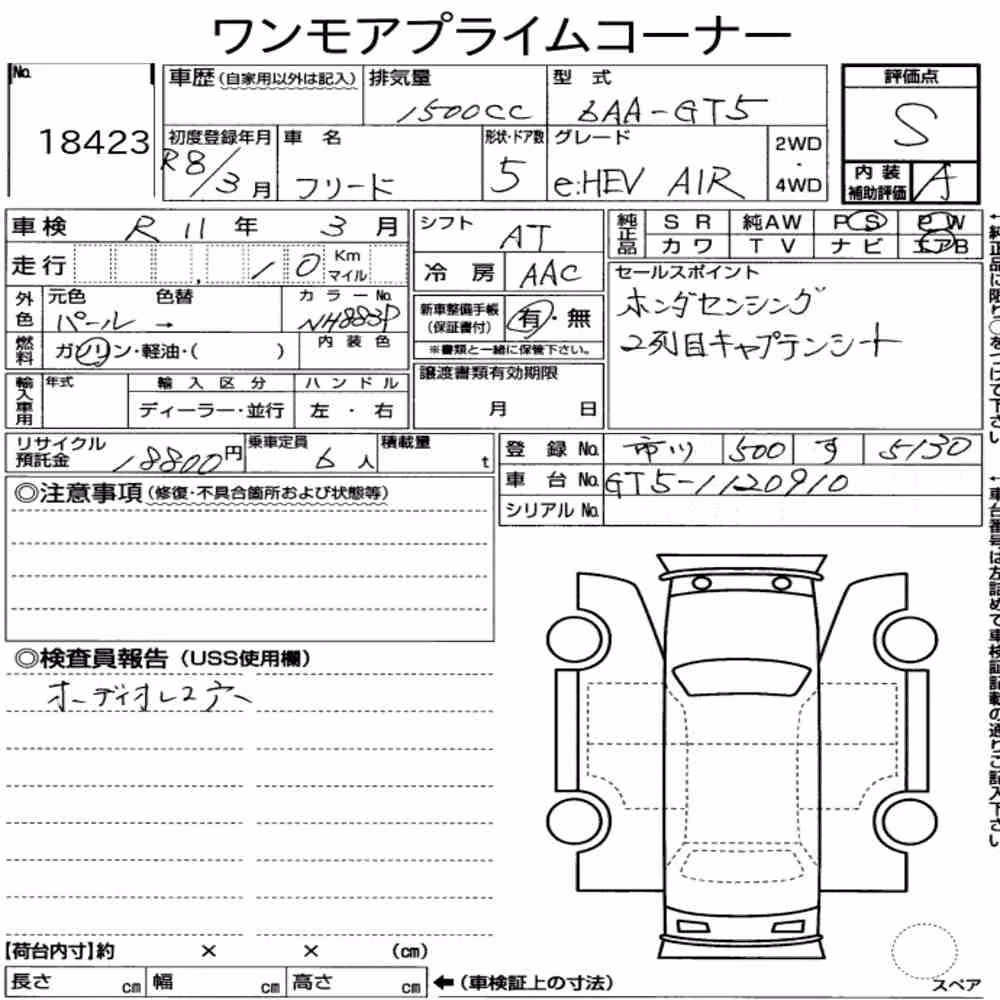 ワンモアプライムコーナー
No. 18423
車歴(自家用以外は記入) 排気量 1500CC 型式 6AA-GT5
評価点 S
初度登録年月 R8/3月 車名 フリード 形状・ドア数 5 グレード e:HEV AIR 2WD・4WD
内装補助評価 A
車検 R 11年 3月 シフト AT
純正品 SR 純AW PS PW
カワ TV ナビ エアB
走行 , 10 Km マイル 冷房 AAC
セールスポイント
ホンダセンシング
2列目キャプテンシート
外色 元色 パール 色替 → カラーNo. NH883P
新車整備手帳(保証書付) 有・無
※書類と一緒に保管下さい。
燃料 ガソリン・軽油・( ) 内装色
輸入車用 年式 輸入区分 ハンドル
ディーラー・並行 左・右
譲渡書類有効期限
月 日
リサイクル預託金 18800円 乗車定員 6人 積載量 t
登録No. 市川 500 す 5130
車台No. GT5-1120910
シリアルNo.
◎注意事項(修復・不具合箇所および状態等)
◎検査員報告(USS使用欄)
オーディオレス
【荷台内寸】約 × × (cm)
長さ cm 幅 cm 高さ cm ←(車検証上の寸法)
スペア
←純正品に限り○をつけて下さい
←車台番号は左詰めで車検証記載の通りご記入下さい